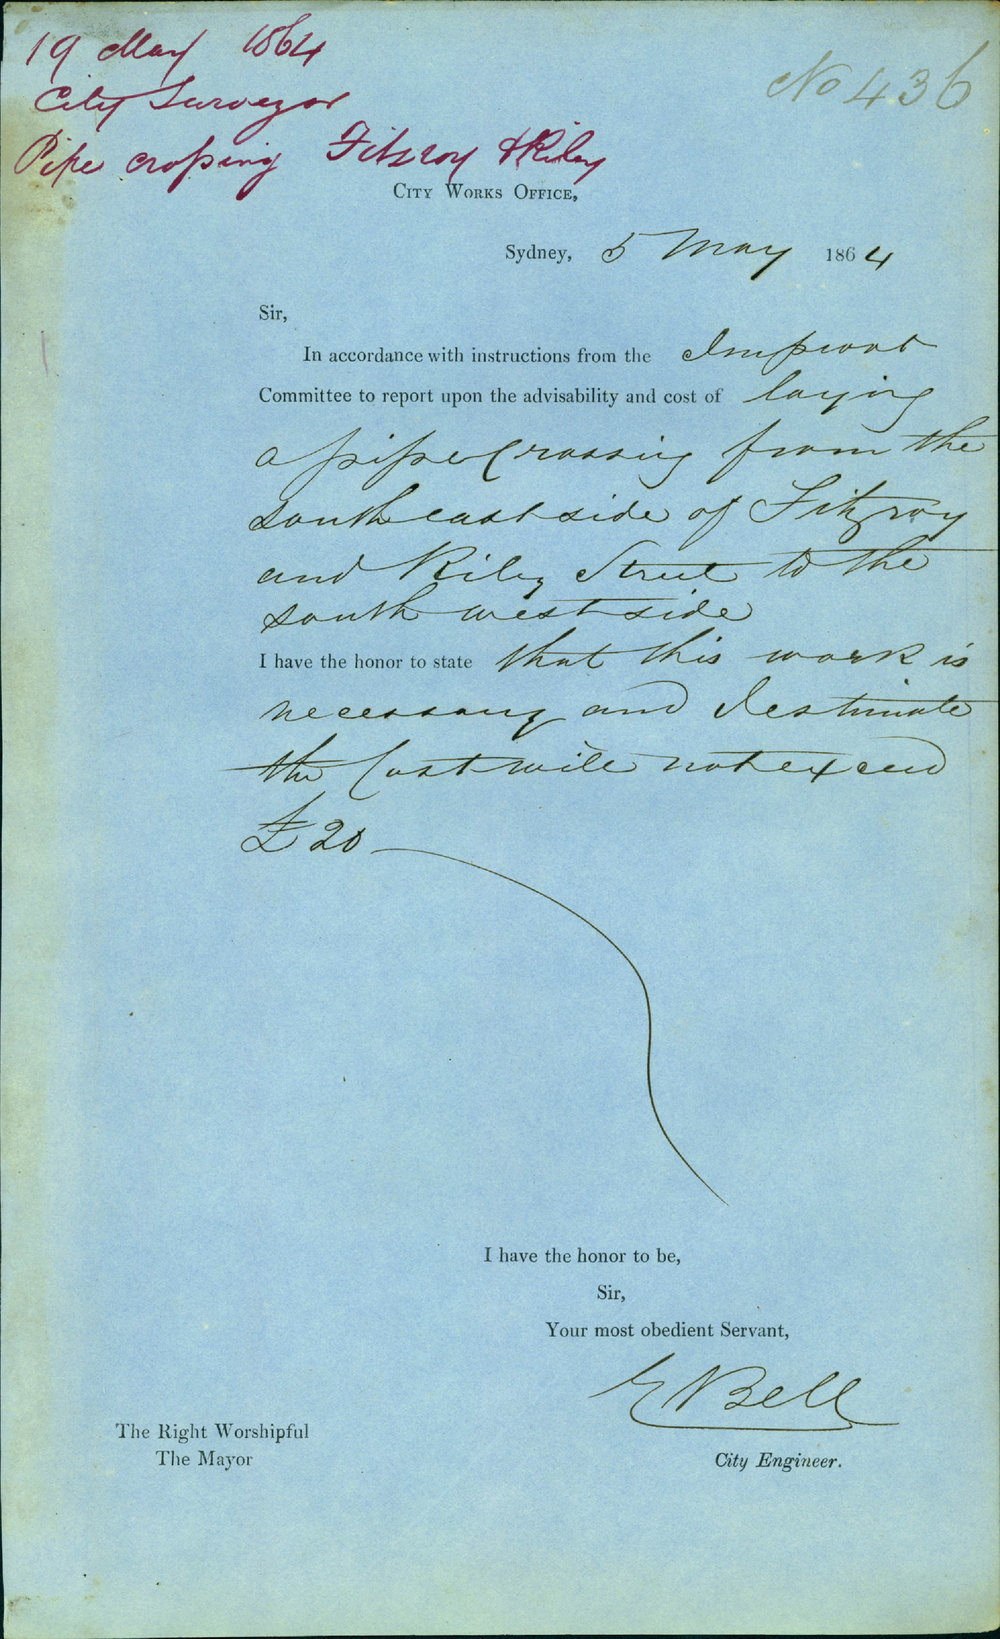 19 May 1864
City Surveyor
Pipe crossing Fitzroy & Riley
No 436
CITY WORKS OFFICE,
Sydney, 5 May 1864
Sir,
In accordance with instructions from the Improvt
Committee to report upon the advisability and cost of laying
a pipe Crossing from the
south east side of Fitzroy
and Riley Street to the
south west side
I have the honor to state that this work is
necessary and I estimate
the Cost will not exceed
£20
I have the honor to be,
Sir,
Your most obedient Servant,
E Bell
City Engineer.
The Right Worshipful
The Mayor